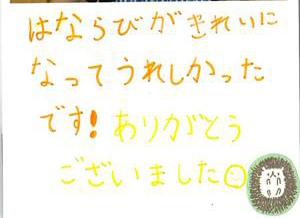 はならびがきれいに
なってうれしかった
です!ありがとう
ございました